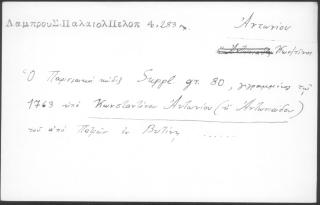 Λαμπρου Σ. Παλαιολ Πελοπ 4,283
Ἀντωνίου
Κωνστῖνος
Ὁ Παρισιακὸ κώδιξ Suppl gr. 80, γεγραμμένος τῷ
1763 ὑπὸ Κωνσταντίνου Ἀντωνίου (ἢ Ἀντωνιάδου)
τοῦ ἀπὸ ἐν Βυτίνῃ ......